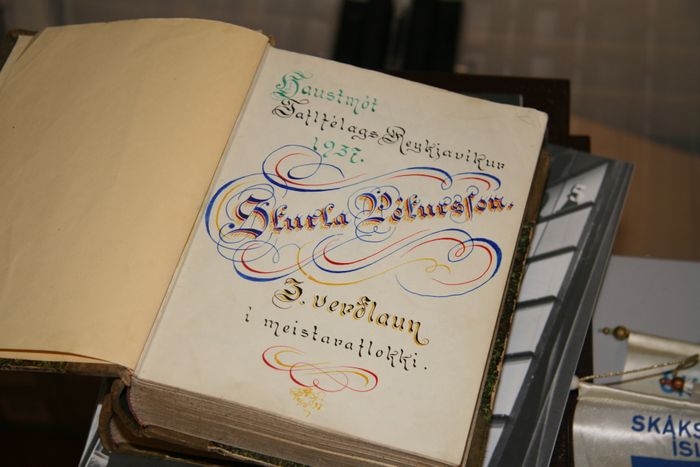 Haustmót
Taflfélags Reykjavíkur
1937.
Sturla Pétursson.
I. verðlaun
í meistaraflokki.
SKÁKS
ÍSL